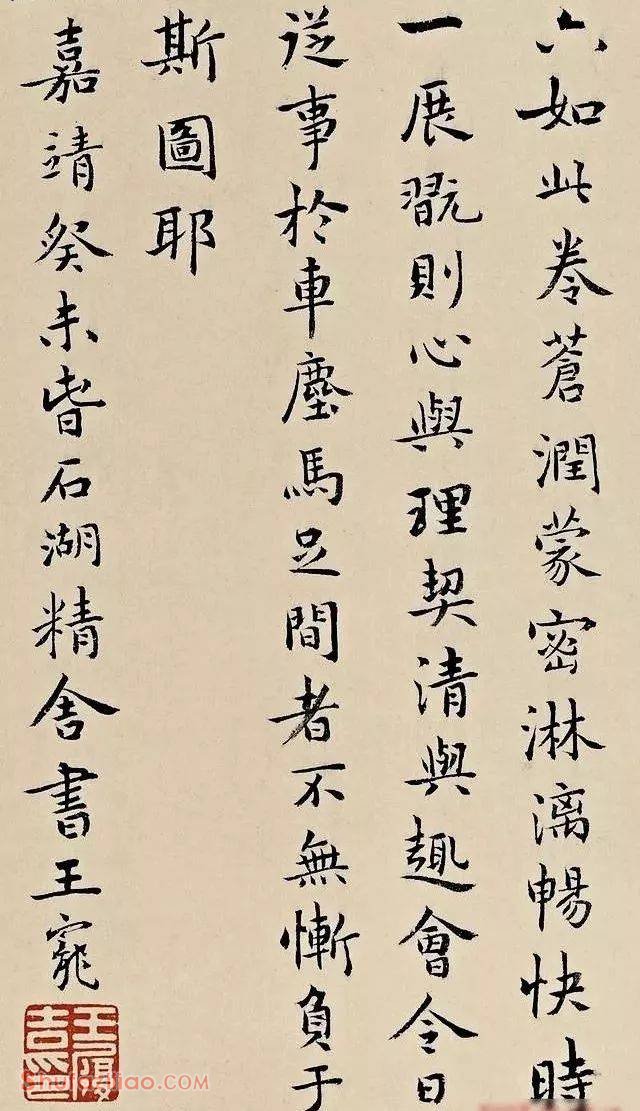 六如此卷蒼潤蒙密淋漓暢快時
一展翫則心與理契清與趣會今日
從事於車塵馬足間者不無慚負于
斯圖耶
嘉靖癸未書石湖精舍書王寵
Shufaziliao.com